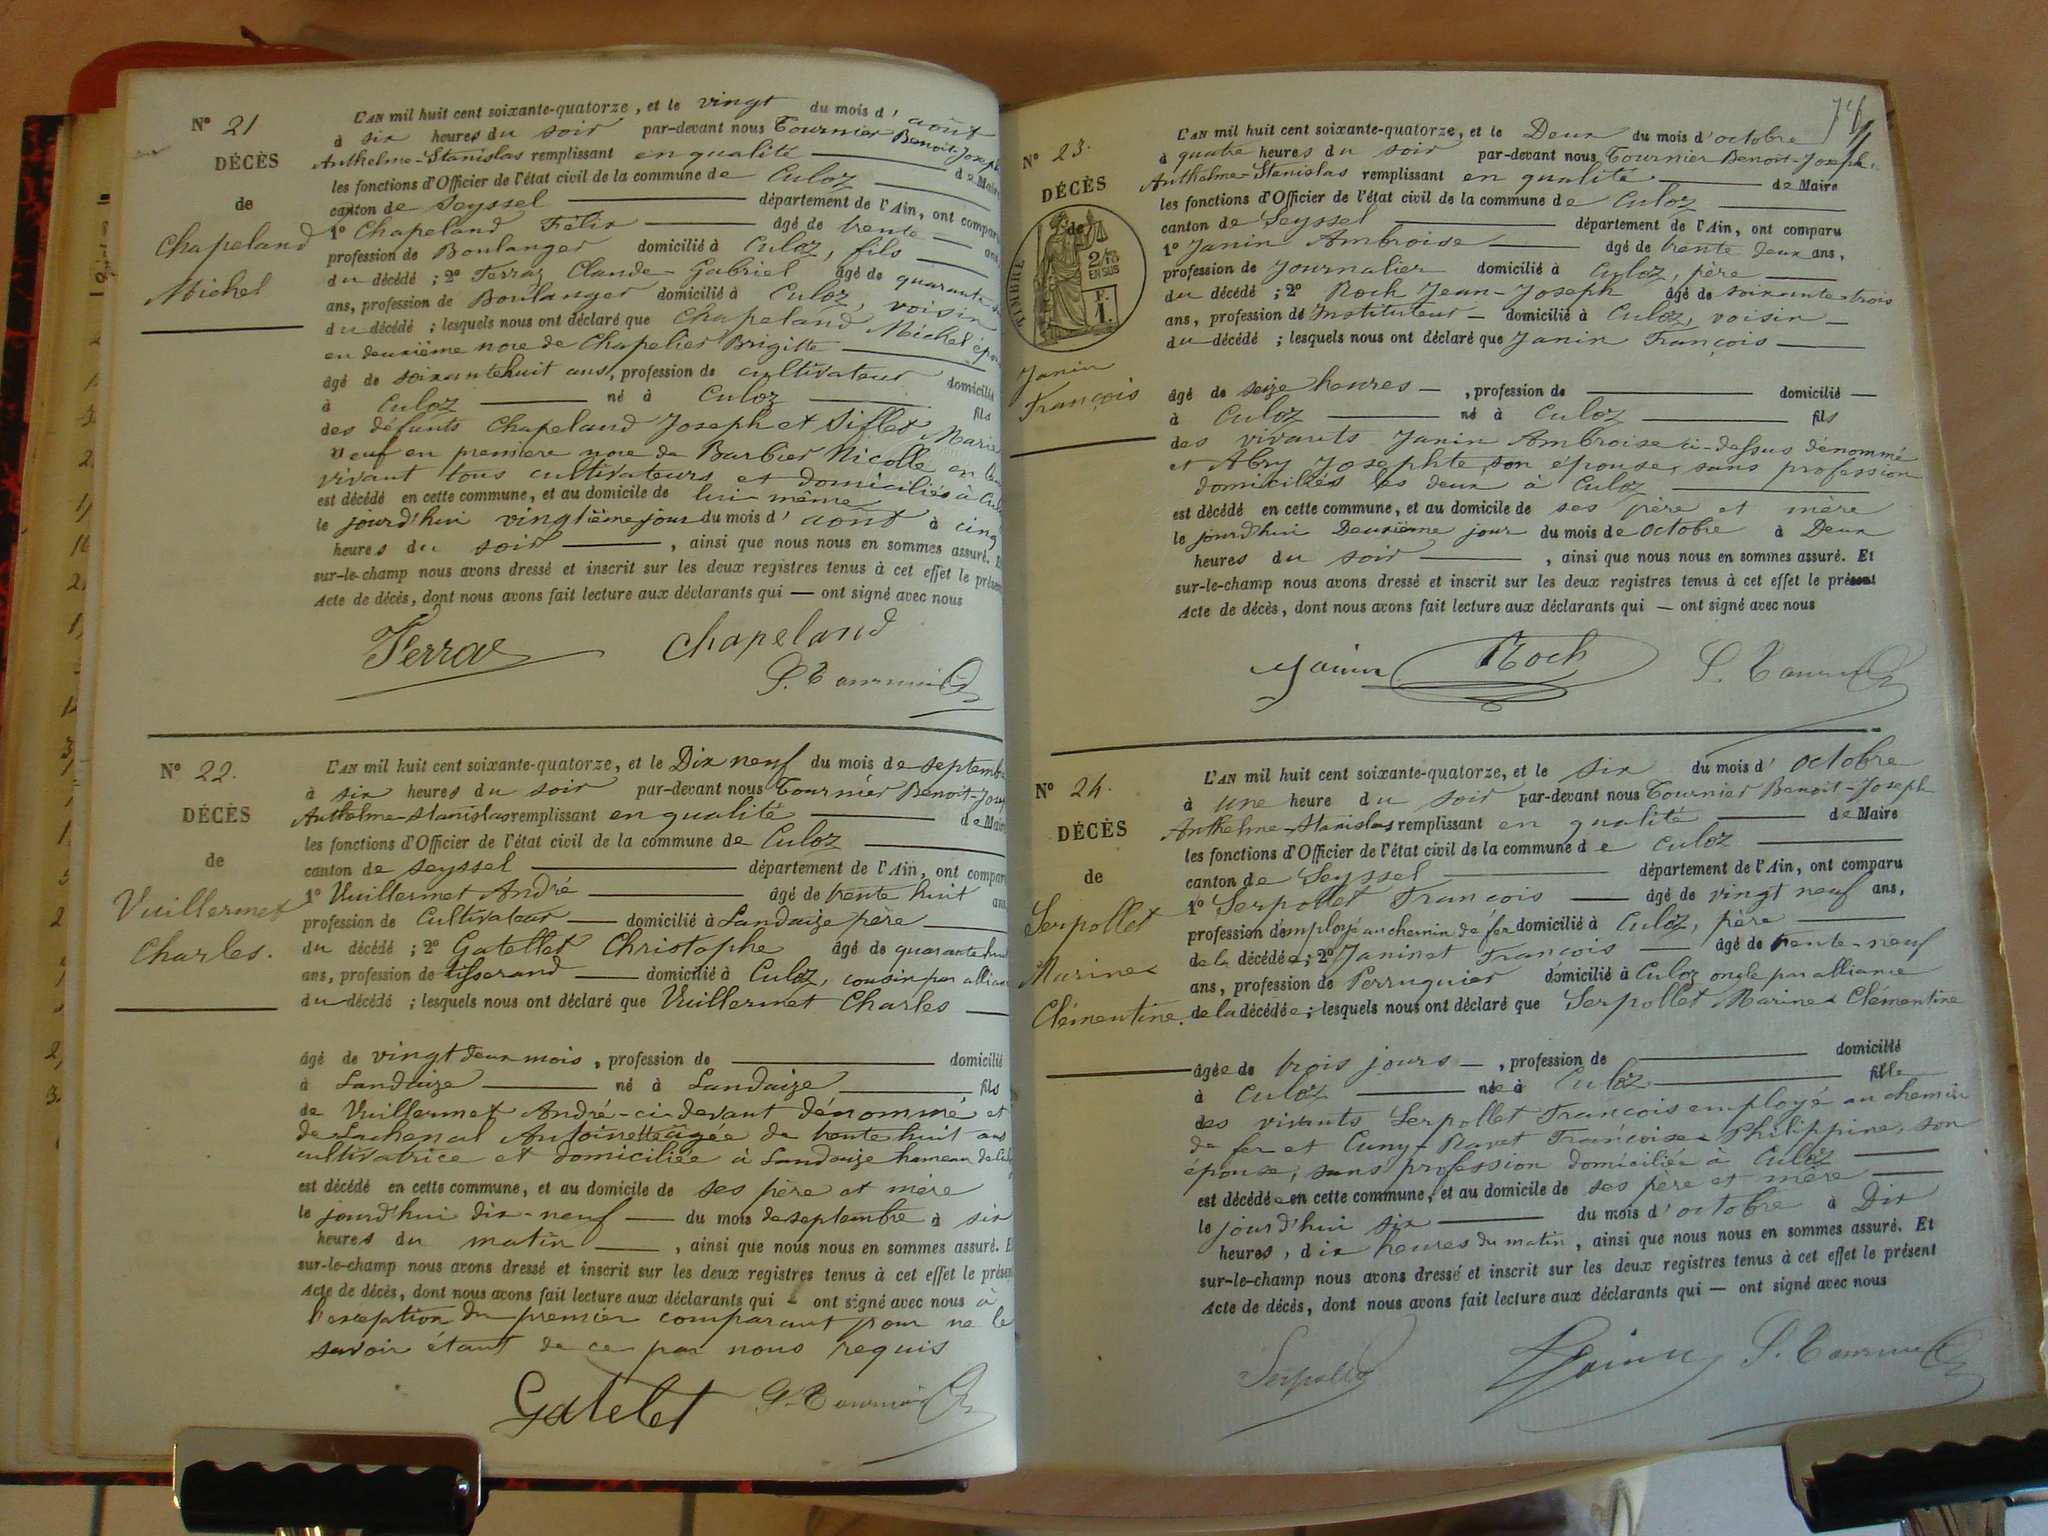 N° 21
DÉCÈS
de
Chapeland
Michel
L'AN mil huit cent soixante-quatorze, et le vingt du mois d'août
à six heures du soir par-devant nous Tournier Benoit-Joseph
Anthelme-Stanislas remplissant en qualité de Maire
les fonctions d'Officier de l'état civil de la commune de Culoz
canton de Seyssel département de l'Ain, ont comparu
1° Chapeland Félix âgé de trente ans,
profession de Boulanger domicilié à Culoz, fils
du décédé ; 2° Ferraz Claude-Gabriel âgé de quarante
ans, profession de Boulanger domicilié à Culoz, voisin
du décédé ; lesquels nous ont déclaré que Chapeland Michel
en deuxième noce de Chapelier Brigitte
âgé de soixante huit ans, profession de cultivateur domicilié
à Culoz né à Culoz fils
des défunts Chapeland Joseph et Sifflet Marie
Veuf en première noce de Barbier Nicolle en leur
vivant tous cultivateurs et domiciliés à Culoz
est décédé en cette commune, et au domicile de lui-même
le jourd'hui vingtième jour du mois d'août à cinq
heures du soir, ainsi que nous nous en sommes assuré. Et
sur-le-champ nous avons dressé et inscrit sur les deux registres tenus à cet effet le présent
Acte de décès, dont nous avons fait lecture aux déclarants qui — ont signé avec nous
Ferraz Chapeland
N° 22.
DÉCÈS
de
Vuillermet
Charles.
L'AN mil huit cent soixante-quatorze, et le Dix neuf du mois de septembre
à six heures du soir par-devant nous Tournier Benoit-Joseph
Anthelme-Stanislas remplissant en qualité de Maire
les fonctions d'Officier de l'état civil de la commune de Culoz
canton de Seyssel département de l'Ain, ont comparu
1° Vuillermet André âgé de trente huit ans
profession de Cultivateur domicilié à Landaize père
du décédé ; 2° Gatellet Christophe âgé de quarante huit
ans, profession de tisserand domicilié à Culoz, cousin par alliance
du décédé ; lesquels nous ont déclaré que Vuillermet Charles
âgé de vingt deux mois, profession de domicilié
à Landaize né à Landaize fils
de Vuillermet André-ci-devant dénommé et
de Lachenal Antoinette âgée de trente huit ans
cultivatrice et domiciliée à Landaize hameau de
est décédé en cette commune, et au domicile de ses père et mère
le jourd'hui dix-neuf du mois de septembre à six
heures du matin, ainsi que nous nous en sommes assuré. Et
sur-le-champ nous avons dressé et inscrit sur les deux registres tenus à cet effet le présent
Acte de décès, dont nous avons fait lecture aux déclarants qui — ont signé avec nous à
l'exception du premier comparant pour ne le
savoir étant de ce par nous requis
Gatelet
N° 23.
DÉCÈS
de
TIMBRE
2/10
EN SUS
F.
1.
Janin
François
L'AN mil huit cent soixante-quatorze, et le Deux du mois d'octobre
à quatre heures du soir par-devant nous Tournier Benoit-Joseph
Anthelme-Stanislas remplissant en qualité de Maire
les fonctions d'Officier de l'état civil de la commune de Culoz
canton de Seyssel département de l'Ain, ont comparu
1° Janin Ambroise âgé de trente deux ans,
profession de Journalier domicilié à Culoz, père
du décédé ; 2° Roch Jean-Joseph âgé de soixante-trois
ans, profession de Instituteur domicilié à Culoz, voisin
du décédé ; lesquels nous ont déclaré que Janin François
âgé de seize heures, profession de domicilié
à Culoz né à Culoz fils
des vivants Janin Ambroise ci-dessus dénommé
et Abry Josephte, son épouse, sans profession
domiciliés les deux à Culoz
est décédé en cette commune, et au domicile de ses père et mère
le jourd'hui Deuxième jour du mois de octobre à Deux
heures du soir, ainsi que nous nous en sommes assuré. Et
sur-le-champ nous avons dressé et inscrit sur les deux registres tenus à cet effet le présent
Acte de décès, dont nous avons fait lecture aux déclarants qui — ont signé avec nous
Janin Roch
N° 24.
DÉCÈS
de
Serpollet
Marine
Clémentine.
L'AN mil huit cent soixante-quatorze, et le six du mois d'octobre
à une heure du soir par-devant nous Tournier Benoit-Joseph
Anthelme-Stanislas remplissant en qualité de Maire
les fonctions d'Officier de l'état civil de la commune de Culoz
canton de Seyssel département de l'Ain, ont comparu
1° Serpollet François âgé de vingt neuf ans,
profession d'employé au chemin de fer domicilié à Culoz, père
de la décédée ; 2° Janinet François âgé de trente-neuf
ans, profession de Perruquier domicilié à Culoz oncle par alliance
de la décédée ; lesquels nous ont déclaré que Serpollet Marine Clémentine
âgée de trois jours, profession de domicilié
à Culoz née à Culoz fille
des vivants Serpollet François employé au chemin
de fer et Cuny-Ravet Françoise Philippine, son
épouse, sans profession domiciliée à Culoz
est décédée en cette commune, et au domicile de ses père et mère
le jourd'hui six du mois d'octobre à Dix
heures, dix heures du matin, ainsi que nous nous en sommes assuré. Et
sur-le-champ nous avons dressé et inscrit sur les deux registres tenus à cet effet le présent
Acte de décès, dont nous avons fait lecture aux déclarants qui — ont signé avec nous
Serpollet